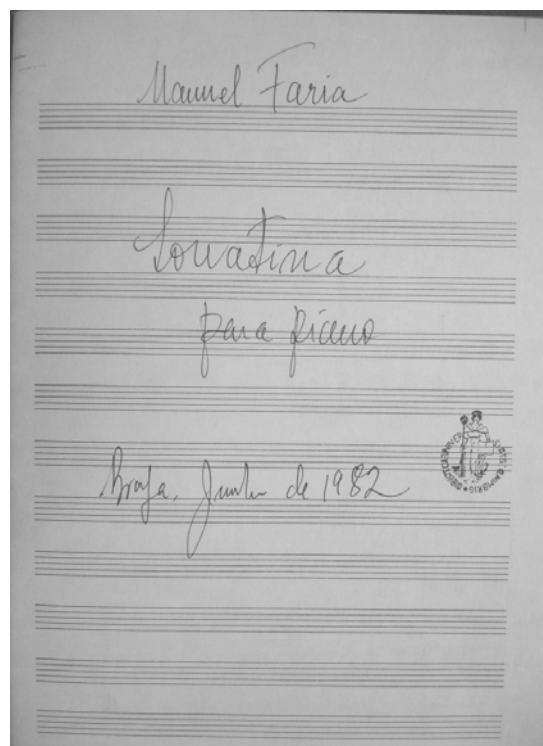 Manuel Faria
Sonatina
para piano
Braga, Junho de 1982